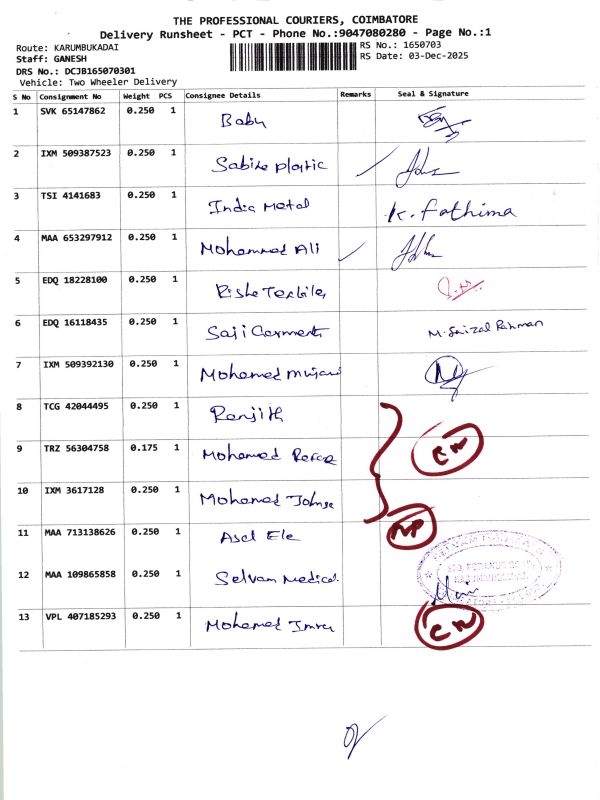 THE PROFESSIONAL COURIERS, COIMBATORE
Delivery Runsheet - PCT - Phone No.:9047080280 - Page No.:1
Route: KARUMBUKADAI
RS No.: 1650703
Staff: GANESH
RS Date: 03-Dec-2025
DRS No.: DCJB165070301
Vehicle: Two Wheeler Delivery
S No Consignment No Weight PCS Consignee Details Remarks Seal & Signature
1 SVK 65147862 0.250 1 Baby
2 IXM 509387523 0.250 1 Sabike plastic
3 TSI 4141683 0.250 1 India Metal K. Fathima
4 MAA 653297912 0.250 1 Mohammed Ali
5 EDQ 18228100 0.250 1
6 EDQ 16118435 0.250 1 Saji Garment M. Faizal Rahman
7 IXM 509392130 0.250 1 Mohamed
8 TCG 42044495 0.250 1 Renjith
9 TRZ 56304758 0.175 1 Mohamed CN
10 IXM 3617128 0.250 1 Mohamed
11 MAA 713138626 0.250 1 Asel Ele NP
12 MAA 109865858 0.250 1 Selvam Medical
13 VPL 407185293 0.250 1 Mohamed Imran CN